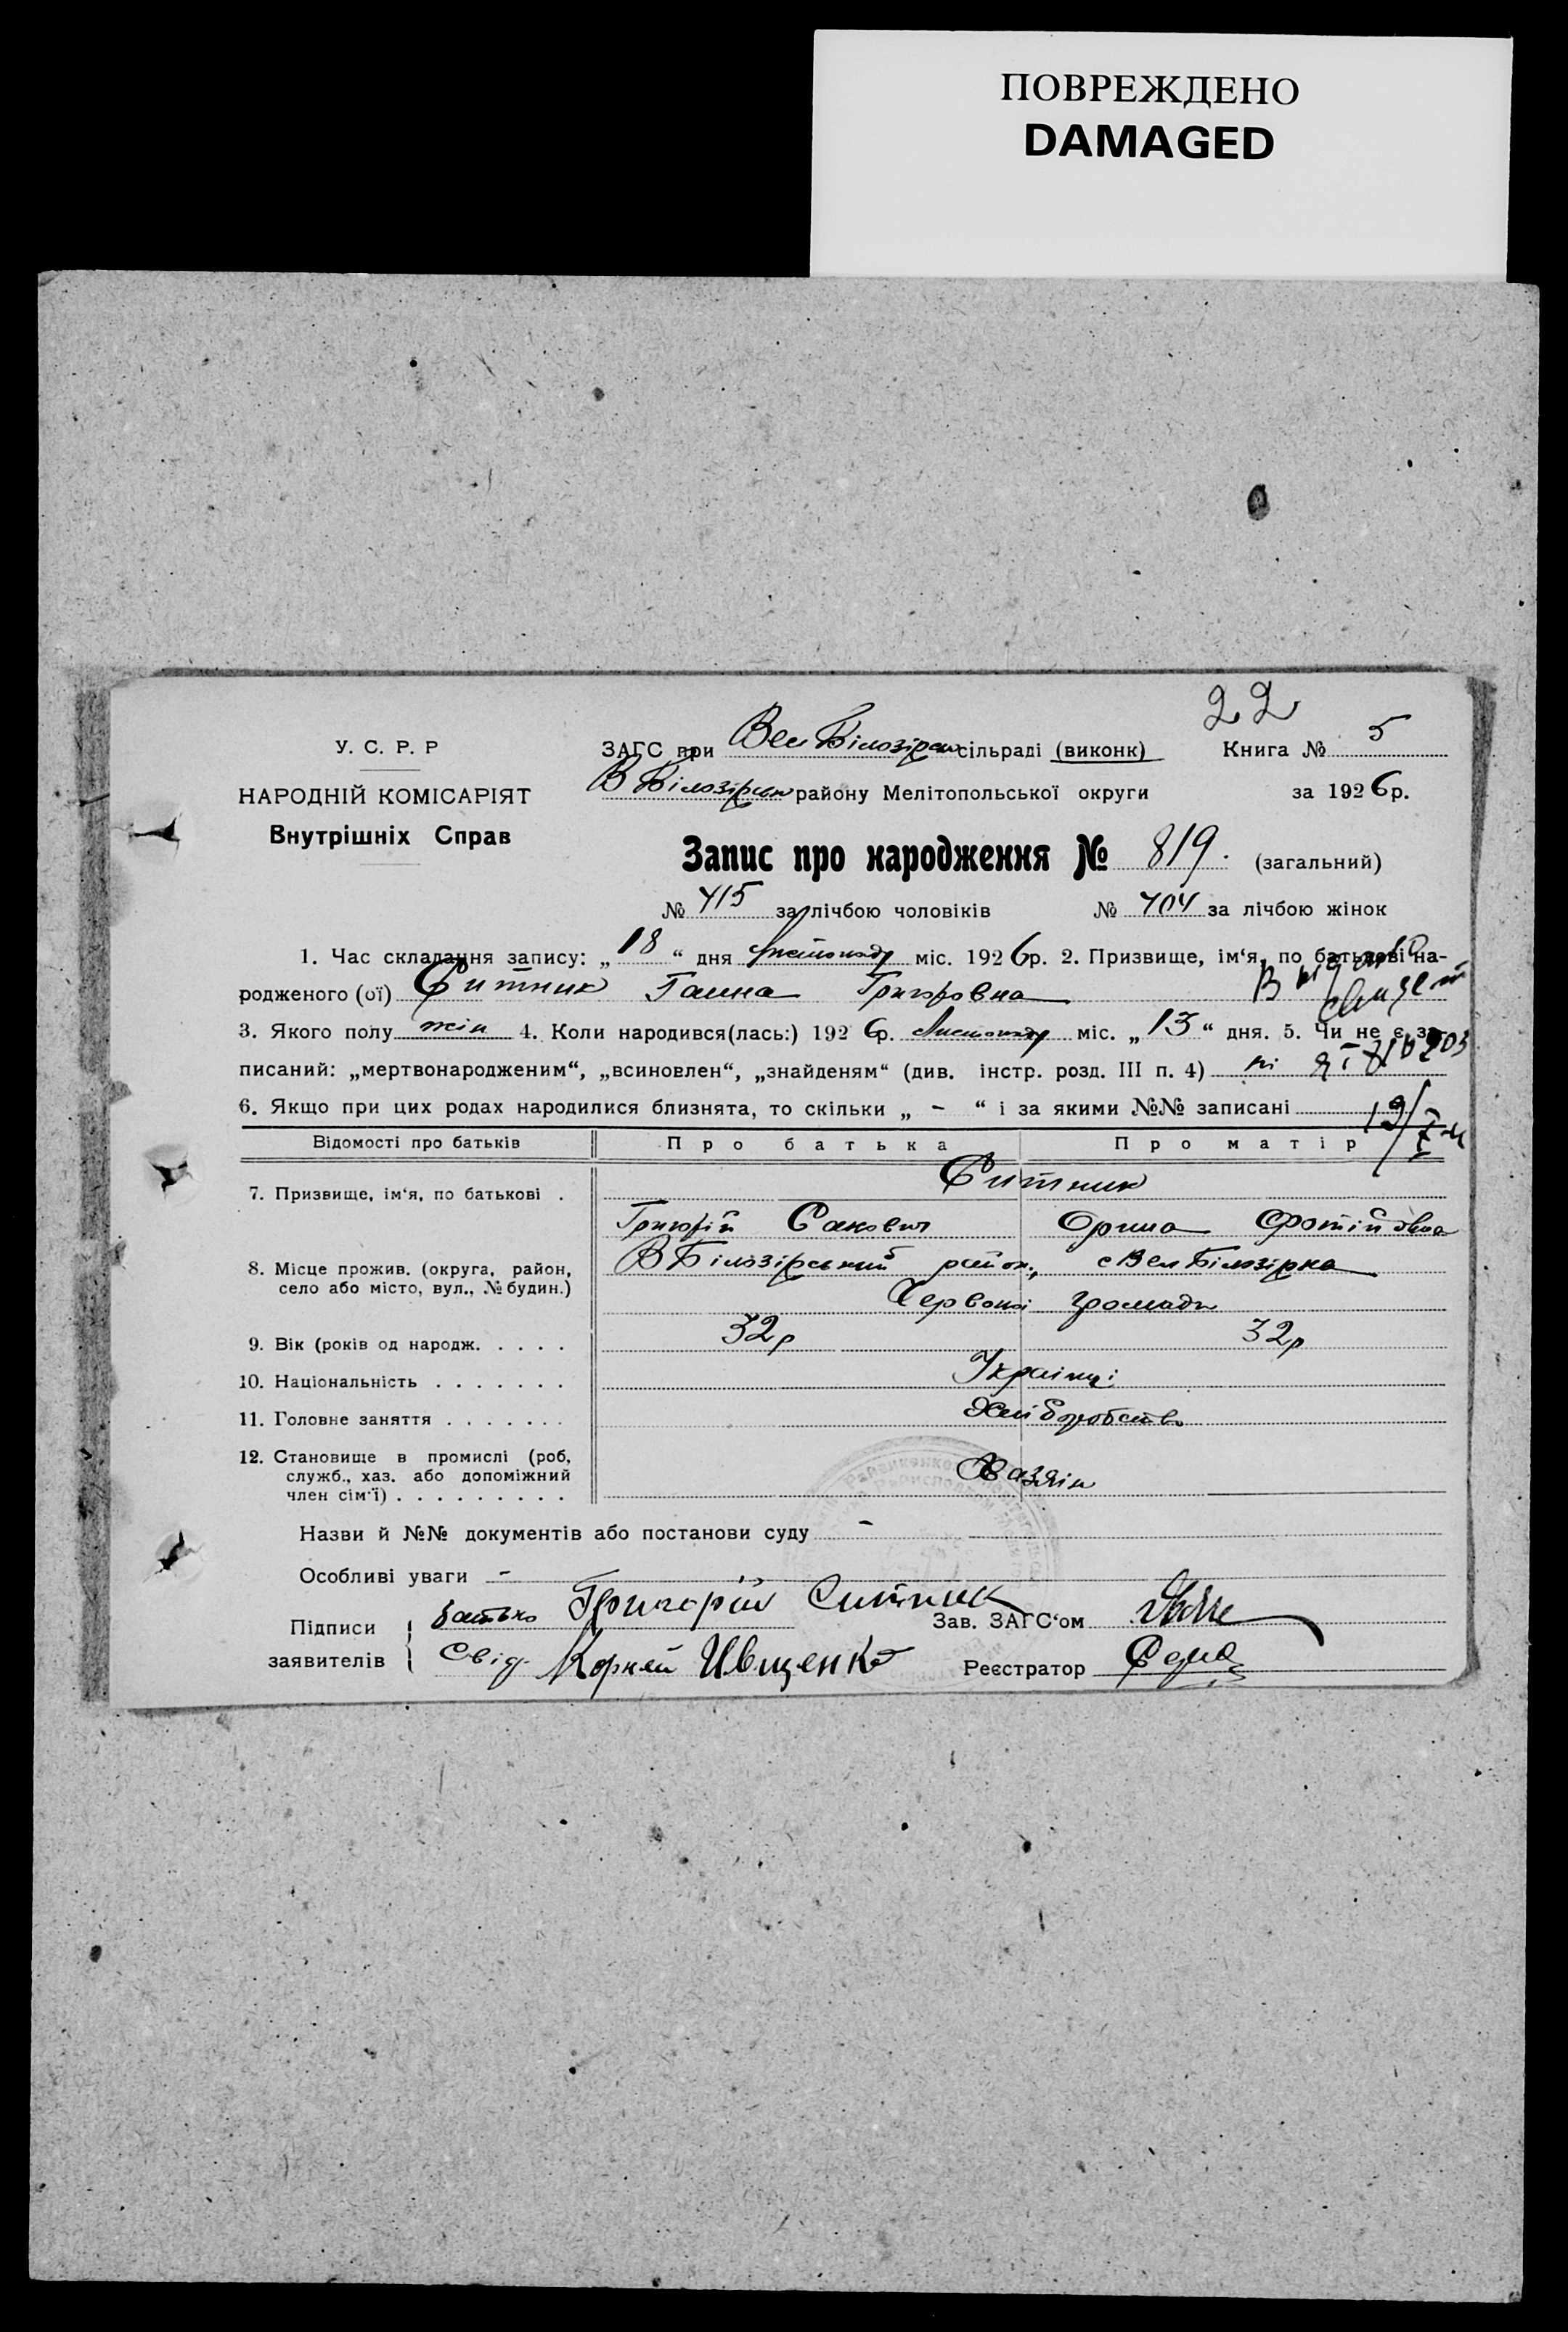 ПОВРЕЖДЕНО
DAMAGED
22
У. С. Р. Р
НАРОДНІЙ КОМІСАРІЯТ
Внутрішніх Справ
ЗАГС при Вел Білозірськ сільраді (виконк) Книга № 5
В Білозірськ району Мелітопольської округи за 1926 р.
Запис про народження № 819. (загальний)
№ 415 за лічбою чоловіків № 404 за лічбою жінок
1. Час складання запису: „18“ дня Листопаду міс. 1926р. 2. Призвище, ім‘я, по батькові на-
родженого (ої) Ситник Ганна Григоровна
3. Якого полу жін 4. Коли народився(лась:) 1926р. Листопаду міс. „13“ дня. 5. Чи не є за-
писаний: „мертвонародженим“, „всиновлен“, „знайденям“ (див. інстр. розд. III п. 4) ні
6. Якщо при цих родах народилися близнята, то скільки „ - “ і за якими №№ записані
Відомості про батьків Про батька Про матір
7. Призвище, ім‘я, по батькові . Ситник
Григорій Сакович Орина Фотіївна
8. Місце прожив. (округа, район, село або місто, вул., № будин.) В Білозірський район, с Вел Білозірка
Червоної громади
9. Вік (років од народж. . . . . 32р 32р
10. Національність . . . . . . . Українці
11. Головне заняття . . . . . . . Хліборобство
12. Становище в промислі (роб, служб., хаз. або допоміжний член сім‘ї) . . . . . . . . . Хазяїн
Назви й №№ документів або постанови суду -
Особливі уваги -
Підписи заявителів батько Григорій Ситник Зав. ЗАГС‘ом
Свід. Корней Иващенко Реєстратор